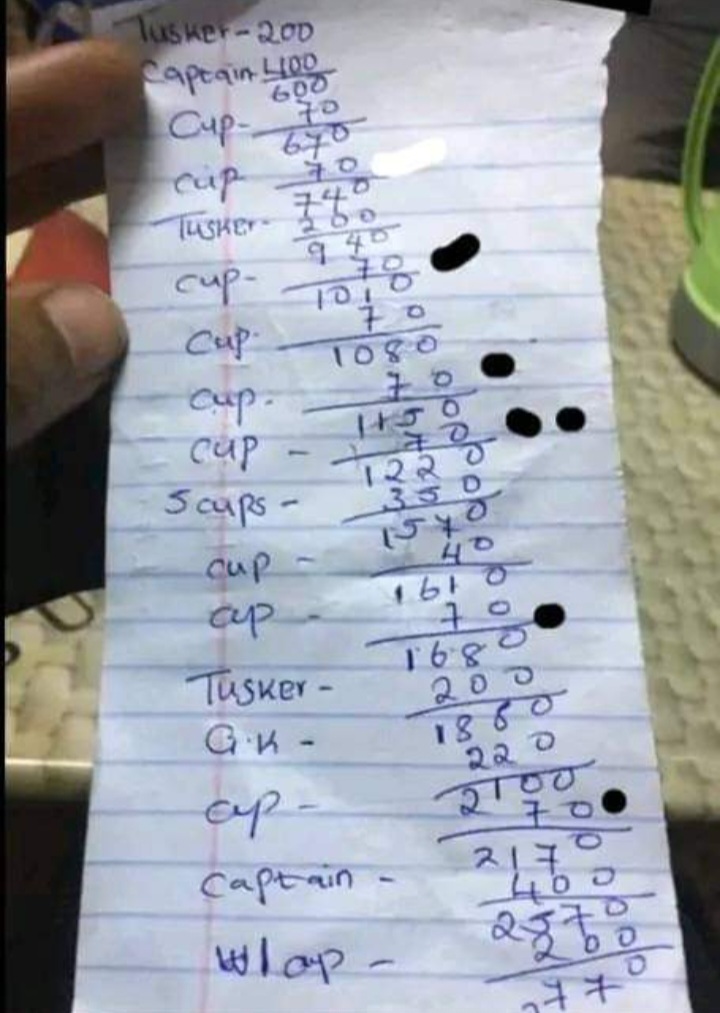 Tusker - 200
Captain 400
600
Cup - 70
670
cup 70
740
Tusker - 200
940
cup - 70
1010
Cup - 70
1080
cup - 70
1150
cup - 70
1220
5 cups - 350
1570
cup - 40
1610
cup - 70
1680
Tusker - 200
1880
G.K - 220
2100
cup - 70
2170
Captain - 400
2570
200
770